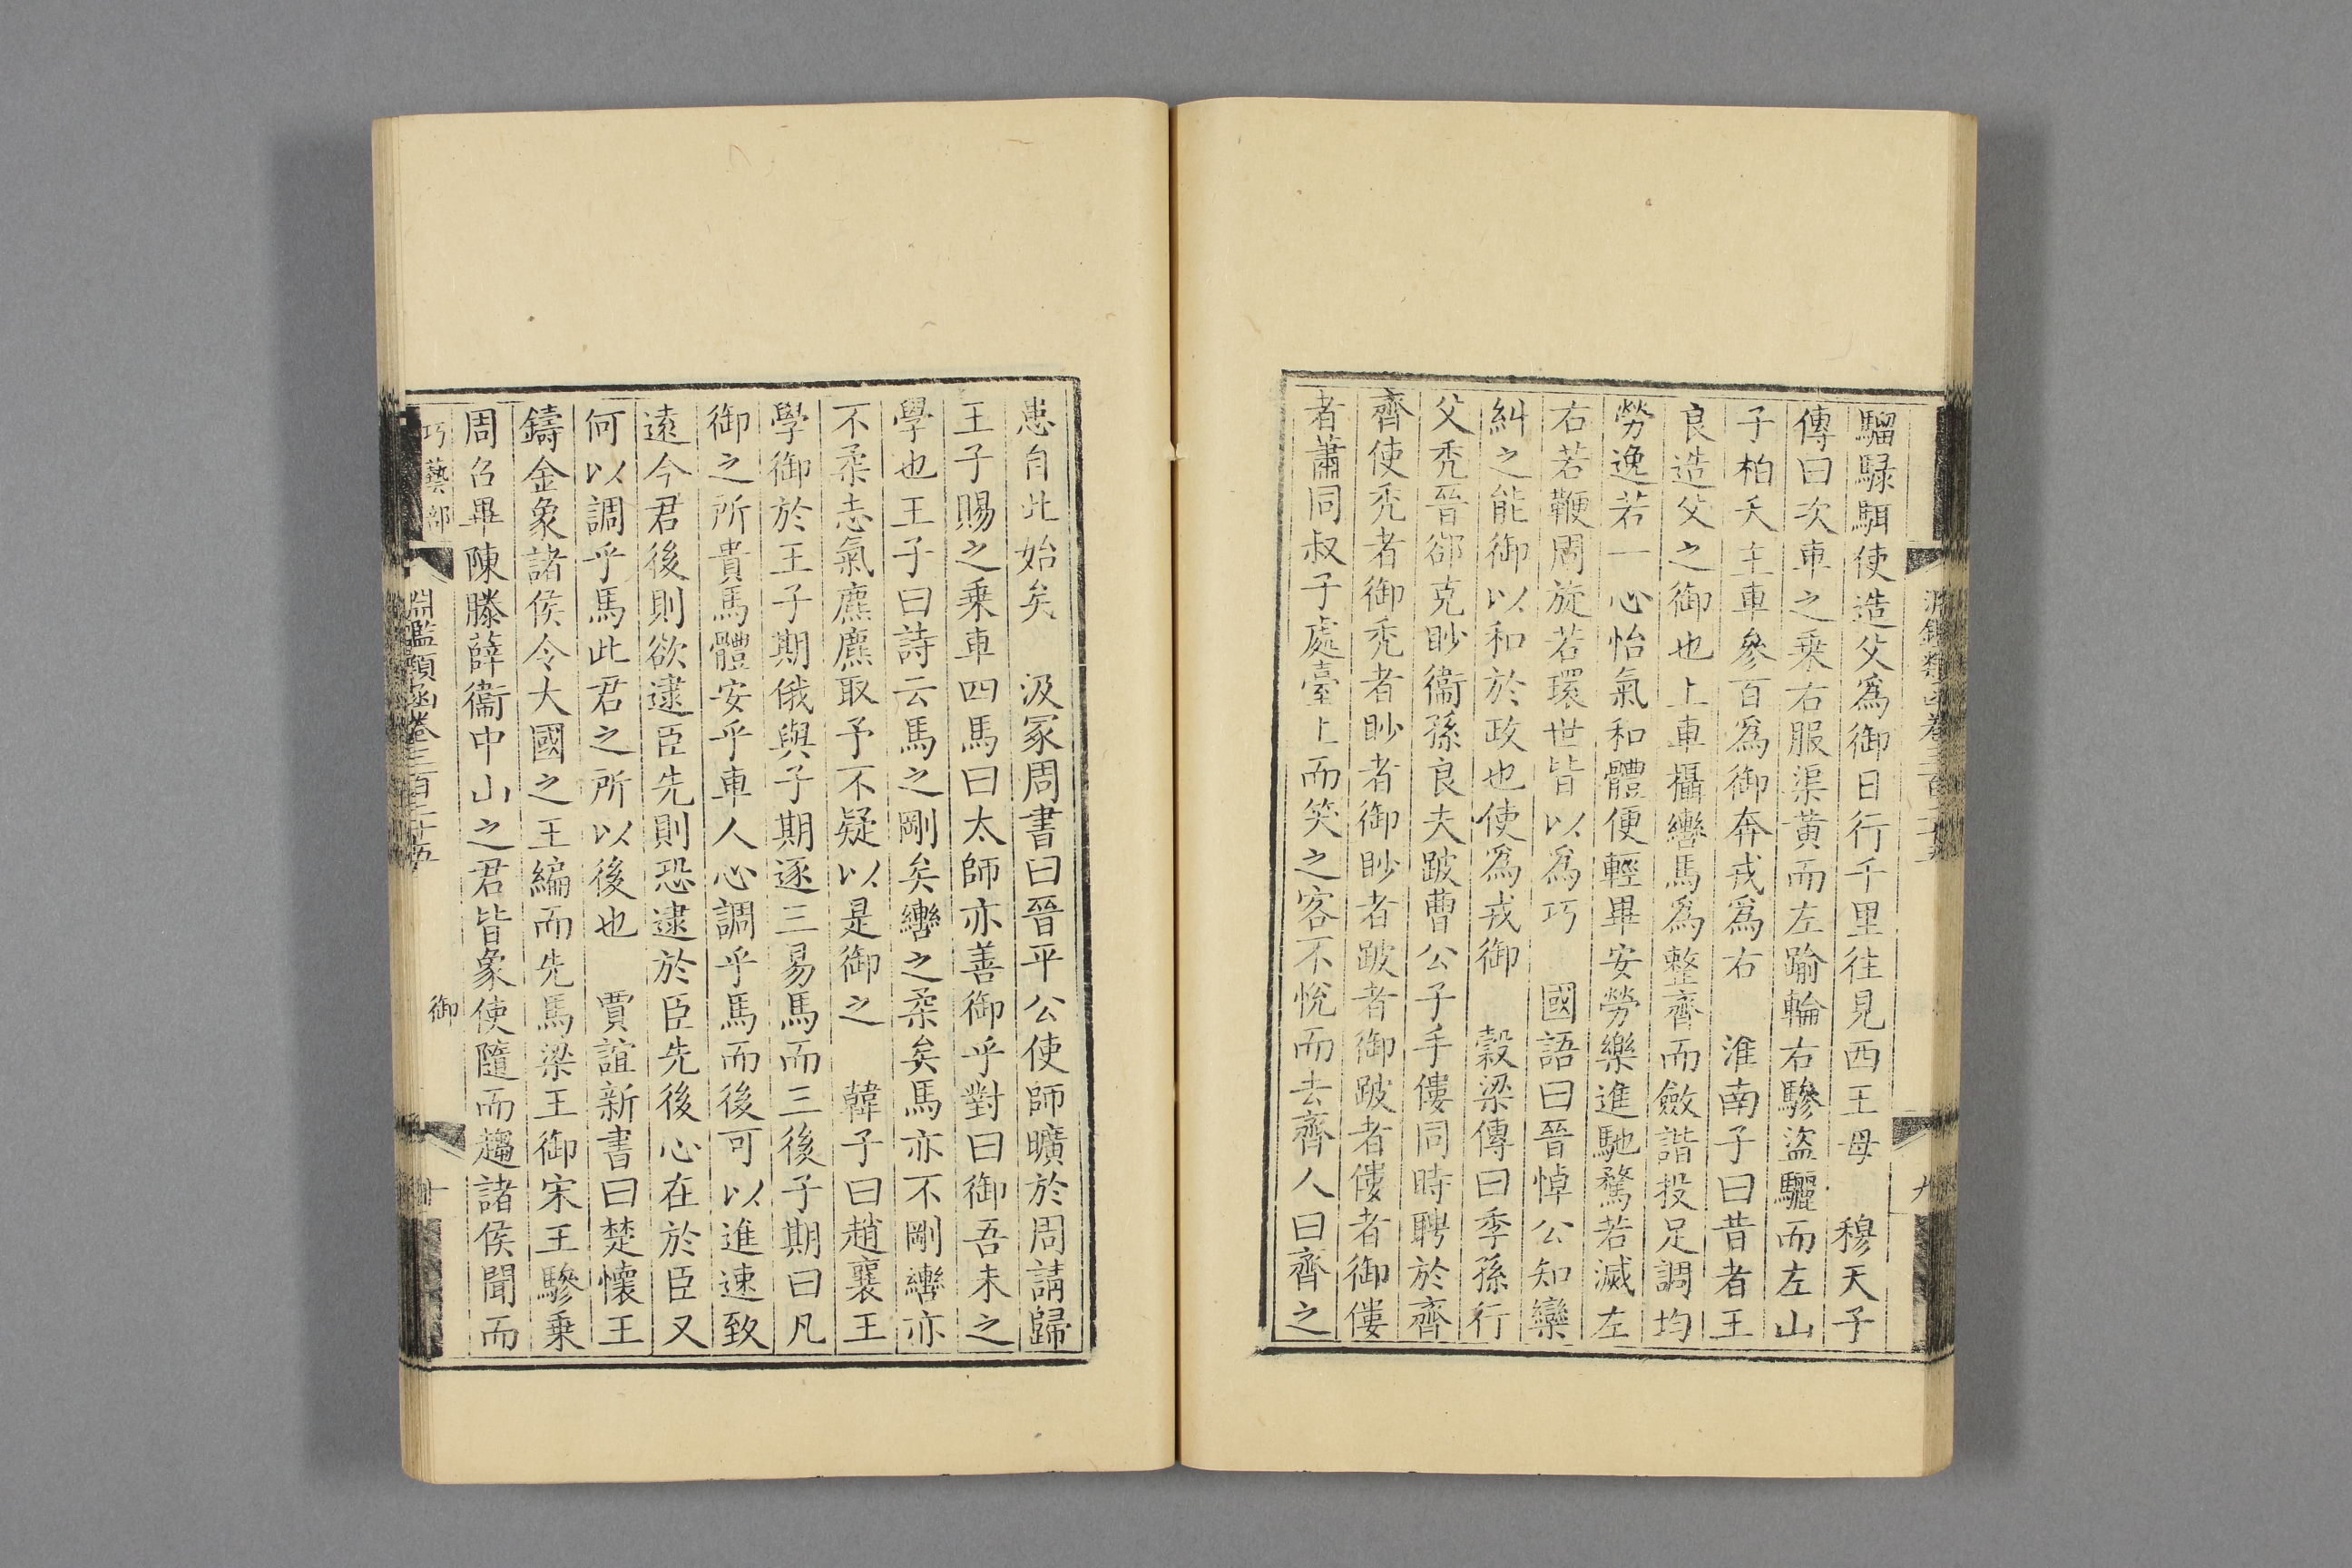 騮騄駬使造父爲御日行千里往見西王母　穆天子
傳曰次車之乘右服渠黃而左踰輪右驂盜驪而左山
子柏夭主車參百爲御奔戎爲右　淮南子曰昔者王
良造父之御也上車攝轡馬爲整齊而斂諧投足調均
勞逸若一心怡氣和體便輕畢安勞樂進馳騖若滅左
右若鞭周旋若環世皆以爲巧　國語曰晉悼公知欒
糾之能御以和於政也使爲戎御　穀梁傳曰季孫行
父禿晉郤克眇衞孫良夫跛曹公子手僂同時聘於齊
齊使禿者御禿者眇者御眇者跛者御跛者僂者御僂
者蕭同叔子處臺上而笑之客不悅而去齊人曰齊之
患自此始矣　汲冢周書曰晉平公使師曠於周請歸
王子賜之乘車四馬曰太師亦善御乎對曰御吾未之
學也王子曰詩云馬之剛矣轡之柔矣馬亦不剛轡亦
不柔志氣麃麃取予不疑以是御之　韓子曰趙襄王
學御於王子期俄與子期逐三易馬而三後子期曰凡
御之所貴馬體安乎車人心調乎馬而後可以進速致
遠今君後則欲逮臣先則恐逮於臣先後心在於臣又
何以調乎馬此君之所以後也　賈誼新書曰楚懷王
鑄金象諸侯令大國之王編而先馬梁王御宋王驂乘
周召畢陳滕薛衞中山之君皆象使隨而趨諸侯聞而
巧藝部　淵鑑類函卷三百二十五　御　十